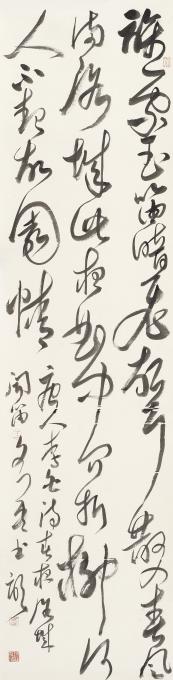 誰家玉笛暗飛聲散入春風
滿洛城此夜曲中聞折柳何
人不起故園情
唐人李白詩春夜洛城
聞笛 書